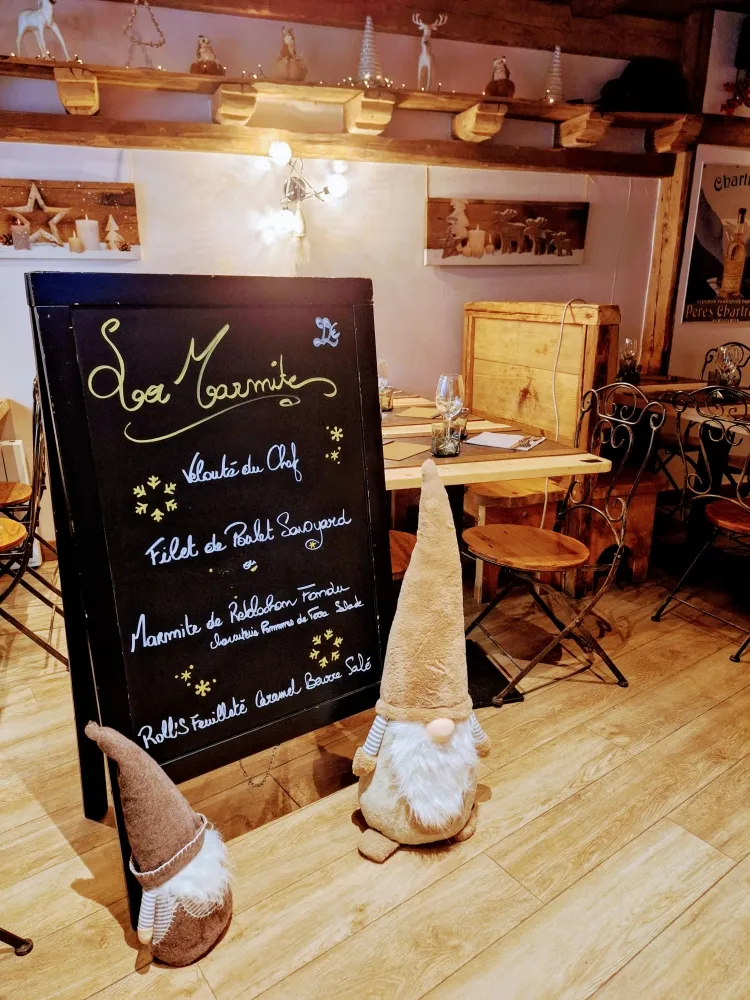 La Marmite
Velouté du Chef
Filet de Poulet Savoyard
ou
Marmite de Reblochon Fondu
charcuterie Pommes de Terre Salade
Roll'S Feuilleté Caramel Beurre Salé
Chartr
Peres Chartre